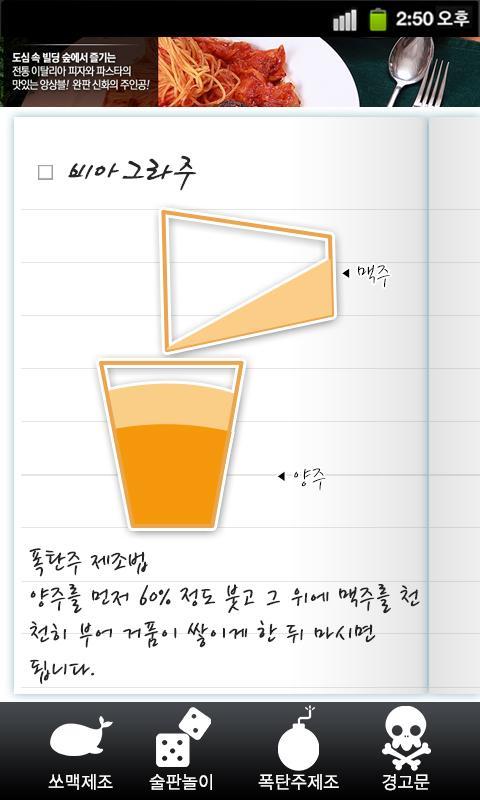 2:50 오후
도심 속 빌딩 숲에서 즐기는
전통 이탈리아 피자와 파스타의
맛있는 앙상블! 완판 신화의 주인공!
비아그라주
맥주
양주
폭탄주 제조법
양주를 먼저 60% 정도 붓고 그 위에 맥주를 천
천히 부어 거품이 쌓이게 한 뒤 마시면
됩니다.
쏘맥제조
술판놀이
폭탄주제조
경고문